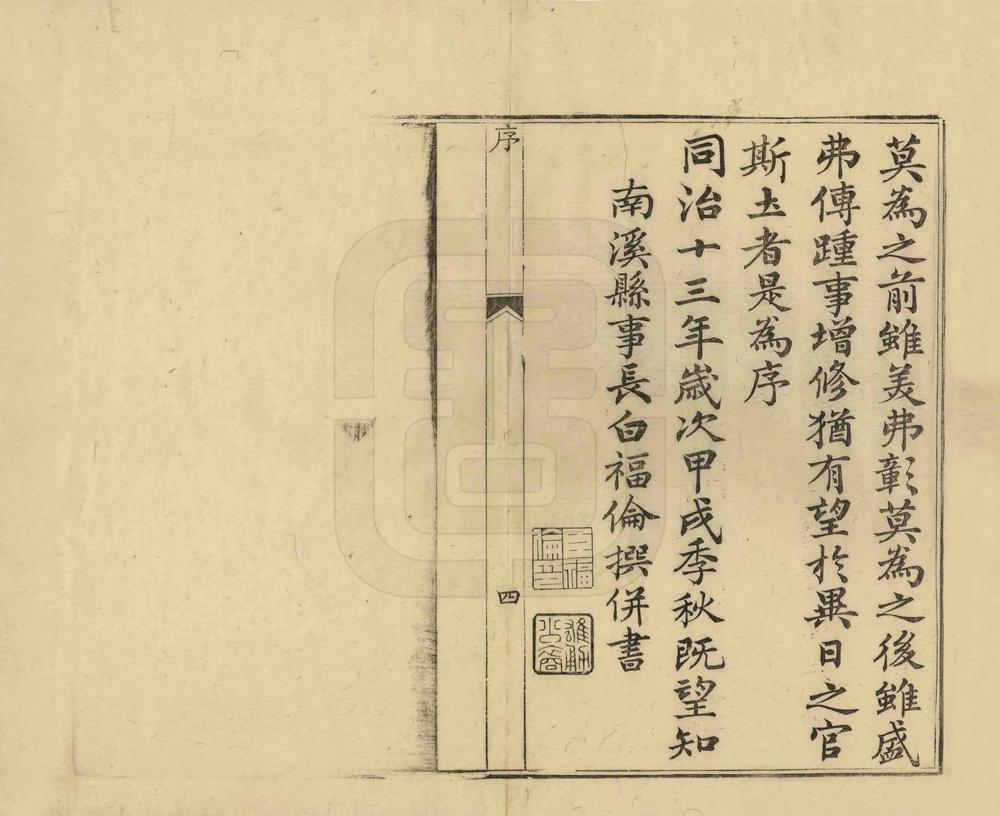 莫為之前雖美弗彰莫為之後雖盛
弗傳踵事增修猶有望於異日之官
斯土者是為序
同治十三年歲次甲戌季秋既望知
南溪縣事長白福倫撰併書
序
四